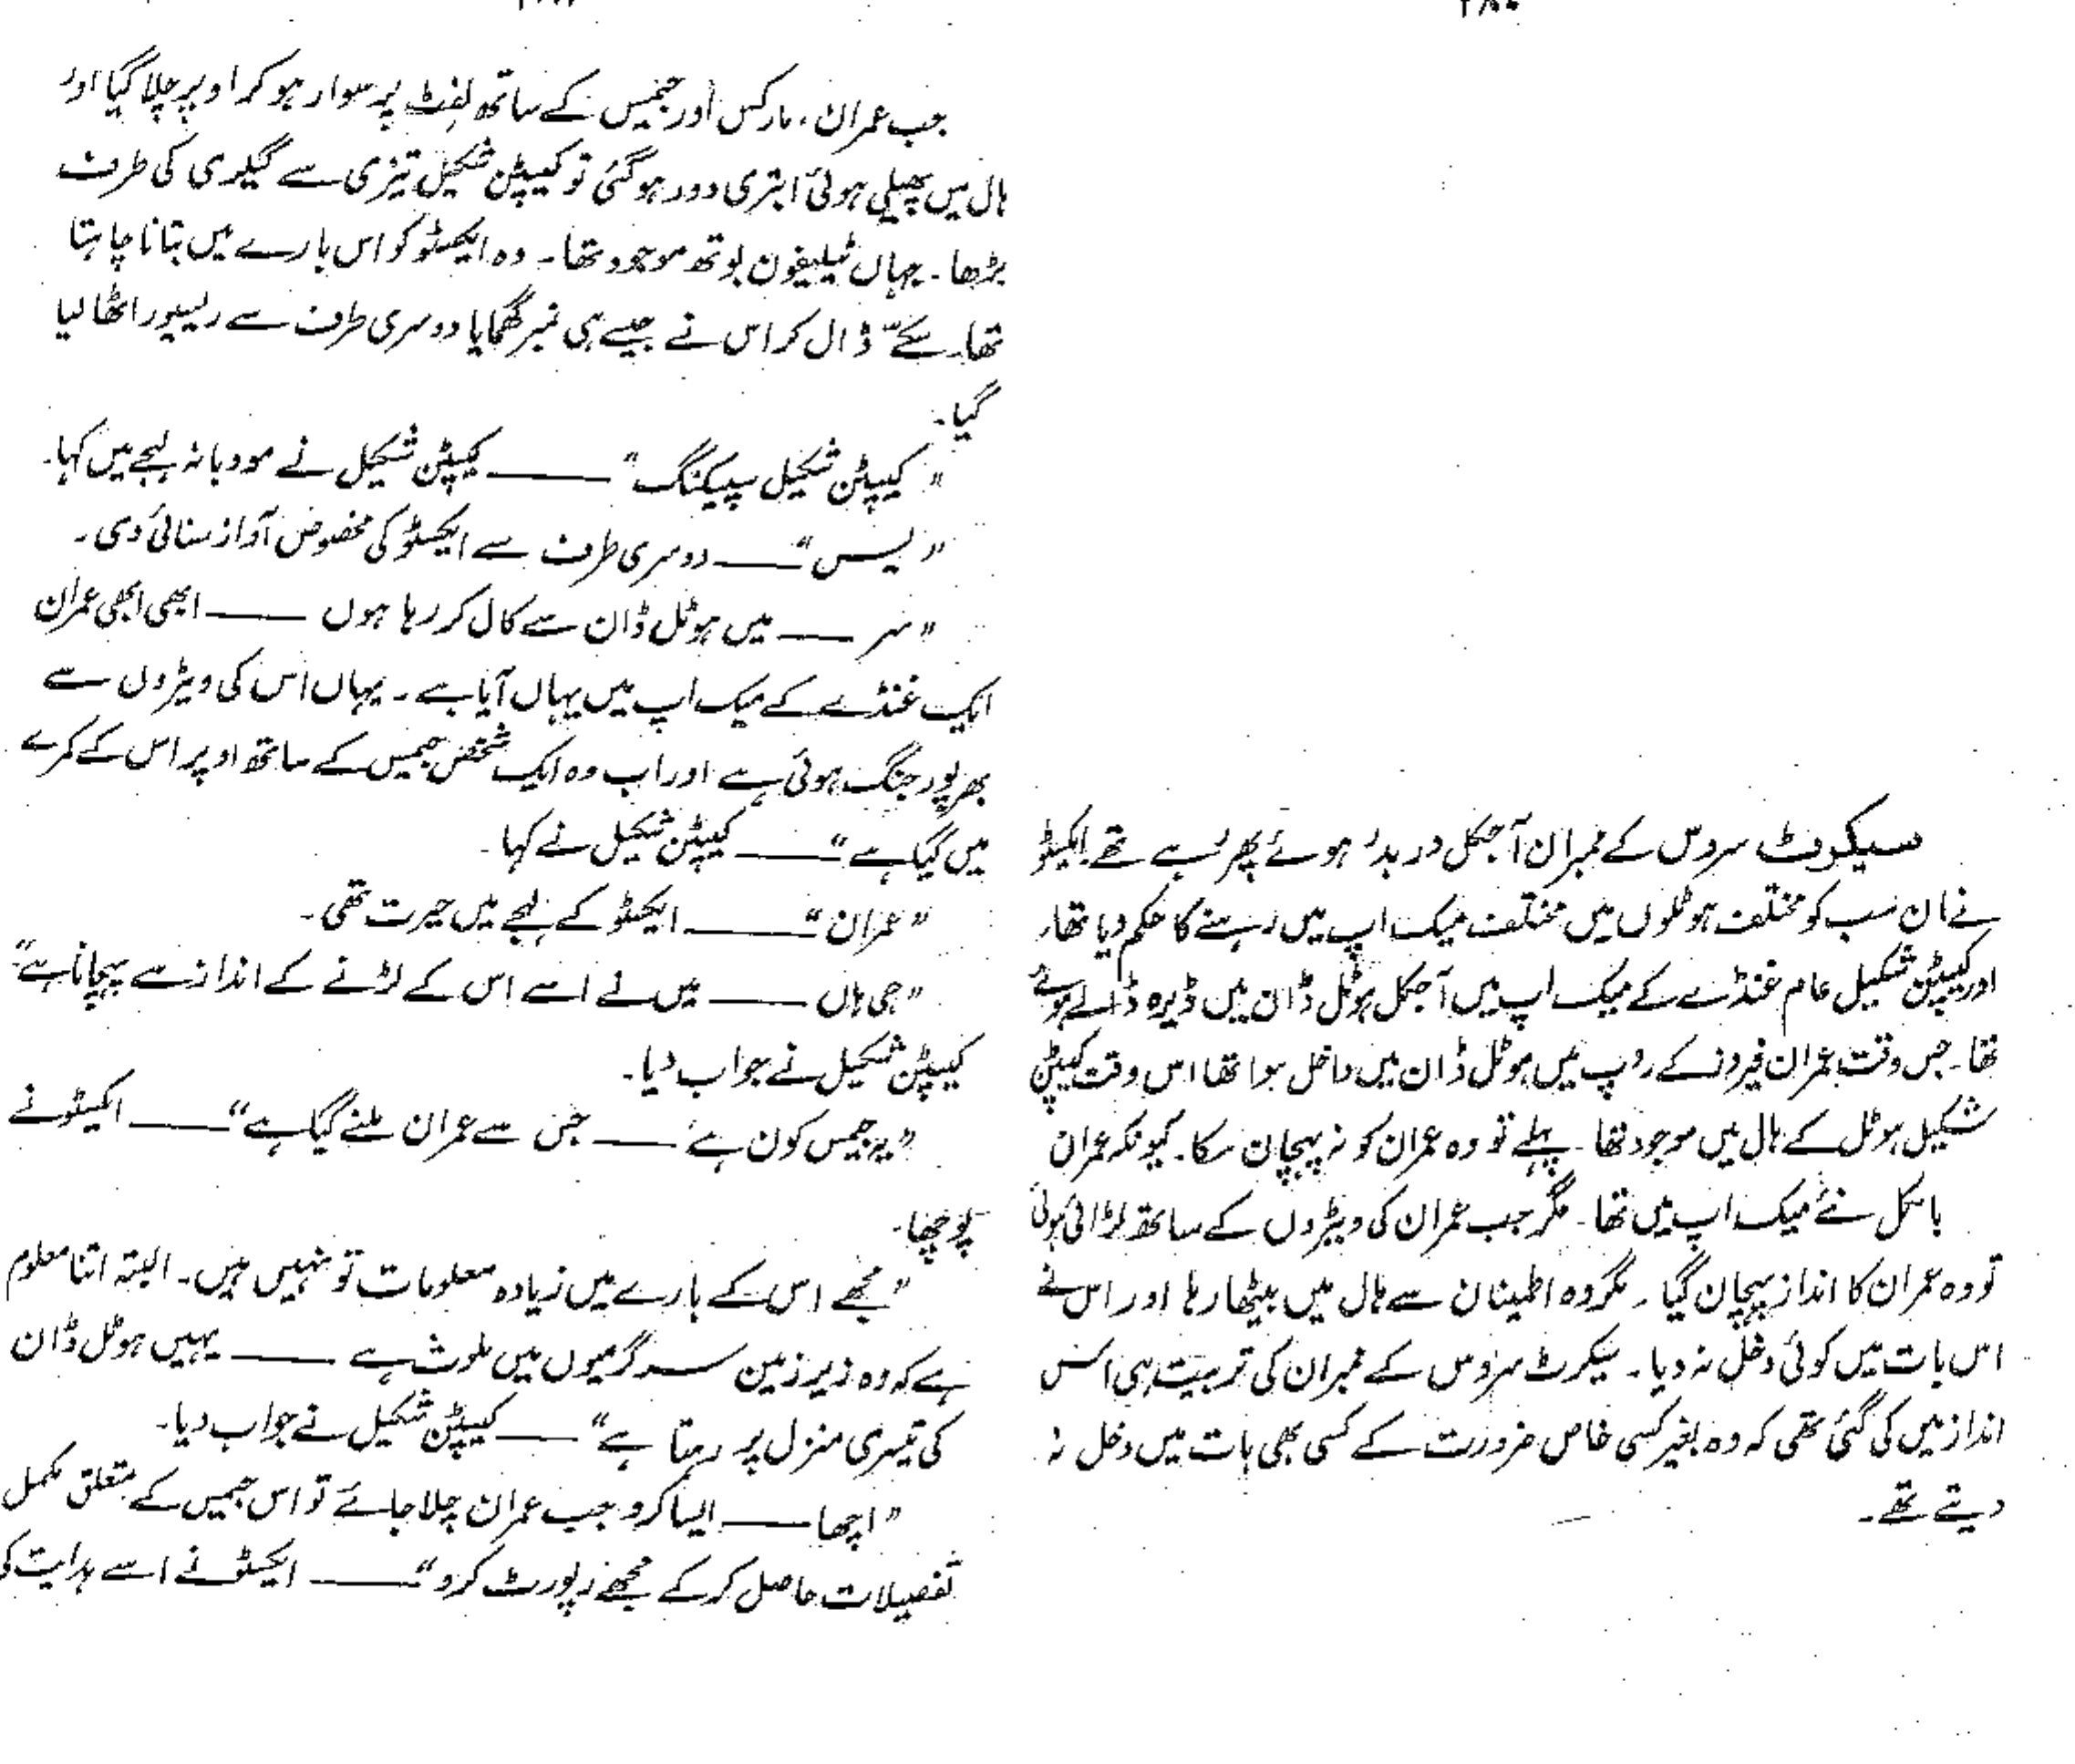 ۲۸۰
سیکرٹ سروس کے ممبران آجکل در بدر ہوئے پھر رہے تھے۔ ایکسٹو
نے ان سب کو مختلف ہوٹلوں میں مختلف میک اپ میں رہنے کا حکم دیا تھا۔
اور کیپٹن شکیل عام غنڈے کے میک اپ میں آجکل ہوٹل ڈان میں ڈیرہ ڈالے ہوئے
تھا۔ جس وقت عمران فیروز کے روپ میں ہوٹل ڈان میں داخل ہوا تھا اس وقت کیپٹن
شکیل ہوٹل کے ہال میں موجود تھا۔ پہلے تو وہ عمران کو نہ پہچان سکا۔ کیونکہ عمران
بالکل نئے میک اپ میں تھا۔ مگر جب عمران کی ویٹروں کے ساتھ لڑائی ہوئی
تو وہ عمران کا انداز پہچان گیا۔ مگر وہ اطمینان سے ہال میں بیٹھا رہا اور اس نے
اس بات میں کوئی دخل نہ دیا۔ سیکرٹ سروس کے ممبران کی تربیت ہی اس
انداز میں کی گئی تھی کہ وہ بغیر کسی خاص ضرورت کے کسی بھی بات میں دخل نہ
دیتے تھے۔
جب عمران، مارکس اور جیمس کے ساتھ لفٹ پر سوار ہو کر اوپر چلا گیا اور
ہال میں پھیلی ہوئی ابتری دور ہو گئی تو کیپٹن شکیل تیزی سے گیلری کی طرف
بڑھا۔ جہاں ٹیلیفون بوتھ موجود تھا۔ وہ ایکسٹو کو اس بارے میں بتانا چاہتا
تھا۔ سکے ڈال کر اس نے جیسے ہی نمبر گھمایا دوسری طرف سے رسیور اٹھا لیا
گیا۔
"کیپٹن شکیل سپیکنگ" ——— کیپٹن شکیل نے مودبانہ لہجے میں کہا۔
"یس" ——— دوسری طرف سے ایکسٹو کی مخصوص آواز سنائی دی۔
"سر ——— میں ہوٹل ڈان سے کال کر رہا ہوں ——— ابھی ابھی عمران
ایک غنڈے کے میک اپ میں یہاں آیا ہے۔ یہاں اس کی ویٹروں سے
بھرپور جنگ ہوئی ہے اور اب وہ ایک شخص جیمس کے ساتھ اوپر اس کے کمرے
میں گیا ہے" ——— کیپٹن شکیل نے کہا۔
"عمران" ——— ایکسٹو کے لہجے میں حیرت تھی۔
"جی ہاں ——— میں نے اسے اس کے لڑنے کے انداز سے پہچانا ہے"
کیپٹن شکیل نے جواب دیا۔
"یہ جیمس کون ہے ——— جس سے عمران ملنے گیا ہے" ——— ایکسٹو نے
پوچھا۔
"مجھے اس کے بارے میں زیادہ معلومات تو نہیں ہیں۔ البتہ اتنا معلوم
ہے کہ وہ زیر زمین سرگرمیوں میں ملوث ہے ——— یہیں ہوٹل ڈان
کی تیسری منزل پر رہتا ہے" ——— کیپٹن شکیل نے جواب دیا۔
"اچھا ——— ایسا کرو جب عمران چلا جائے تو اس جیمس کے متعلق مکمل
تفصیلات حاصل کر کے مجھے رپورٹ کرو" ——— ایکسٹو نے اسے ہدایت کی